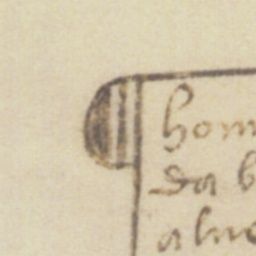 hom
da b
alue